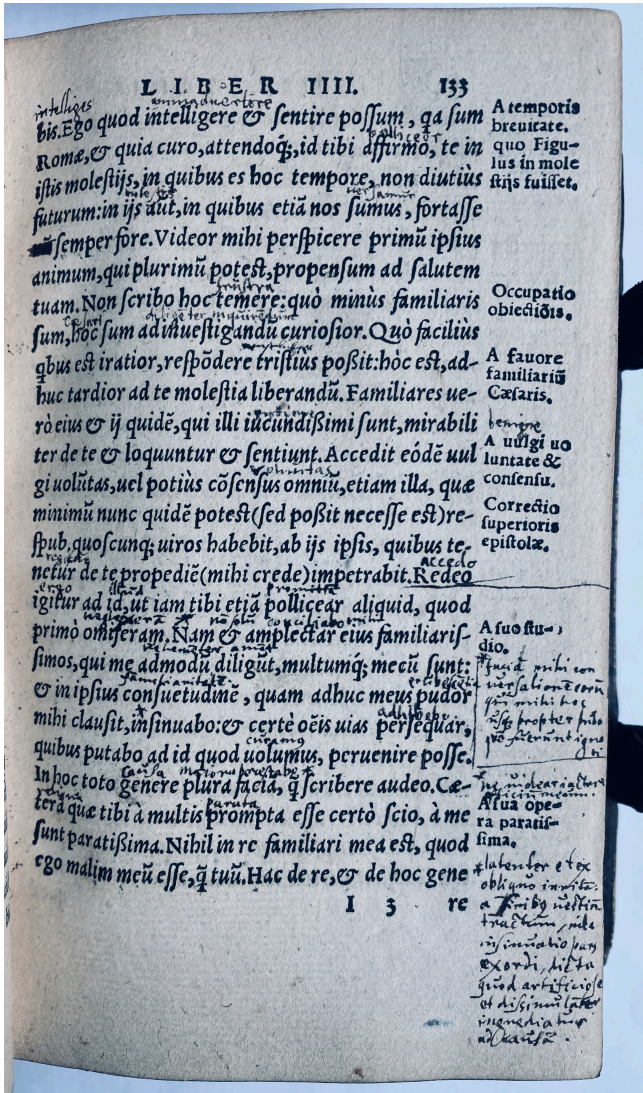 LIBER IIII. 133
intelligis animaduertere
bis. Ego quod intelligere & sentire possum, qa sum
polliceor
Romæ, & quia curo, attendoq́;, id tibi affirmo, te in
istis molestijs, in quibus es hoc tempore, non diutius
molestijs uersamur
futurum: in ijs aūt, in quibus etiā nos sumus, fortasse
semper fore. Videor mihi perspicere primū ipsius
animum, qui plurimū potest, propensum ad salutem
frustra
tuam. Non scribo hoc temere: quò minùs familiaris
Cæsari
sum, hoc sum ad inuestigandū curiosior. Quò facilius
qbus est iratior, respōdere tristius poßit: hòc est, ad-
huc tardior ad te molestia liberandū. Familiares ue-
rò eius & ij quidē, qui illi iucundißimi sunt, mirabili
ter de te & loquuntur & sentiunt. Accedit eódē uul
voluntas
gi uolūtas, uel potiùs cōsensus omniū, etiam illa, quæ
minimū nunc quidē potest (sed poßit necesse est) re-
spub. quoscunq; uiros habebit, ab ijs ipsis, quibus te-
accedo
netur de te propediē (mihi crede) impetrabit. Redeo
ergo illud promitta
igitur ad id, ut iam tibi etiā pollicear aliquid, quod
primò omiseram. Nam & amplectar eius familiaris-
simos, qui me admodū diligūt, multumq́; mecū sunt:
familiaritatē
& in ipsius consuetudinē, quam adhuc meus pudor
mihi clausit, insinuabo: & certè oēis uias persequar,
quibus putabo ad id quod uolumus, peruenire posse.
causa
In hoc toto genere plura faciā, q̄ scribere audeo. Cæ-
parata
tera quæ tibi à multis prompta esse certò scio, à me
sunt paratißima. Nihil in re familiari mea est, quod
ego malim meū esse, q̄ tuū. Hac de re, & de hoc gene
I 3 re
A temporis
breuitate.
quo Figu-
lus in mole
stijs fuisset.
Occupatio
obiectiōis.
A fauore
familiariū
Cæsaris.
benigne
A uulgi uo
luntate &
consensu.
Correctio
superioris
epistolæ.
A suo stu-
dio.
mihi con
uersationē
mihi hoc
propter
A sua ope-
ra paratis-
sima.
latenter et ex
obliquo
tractum, inde
insinuatio pars
exordi, dicta
quod artificiose
et dissimulater
ingrediatur
ad causā.